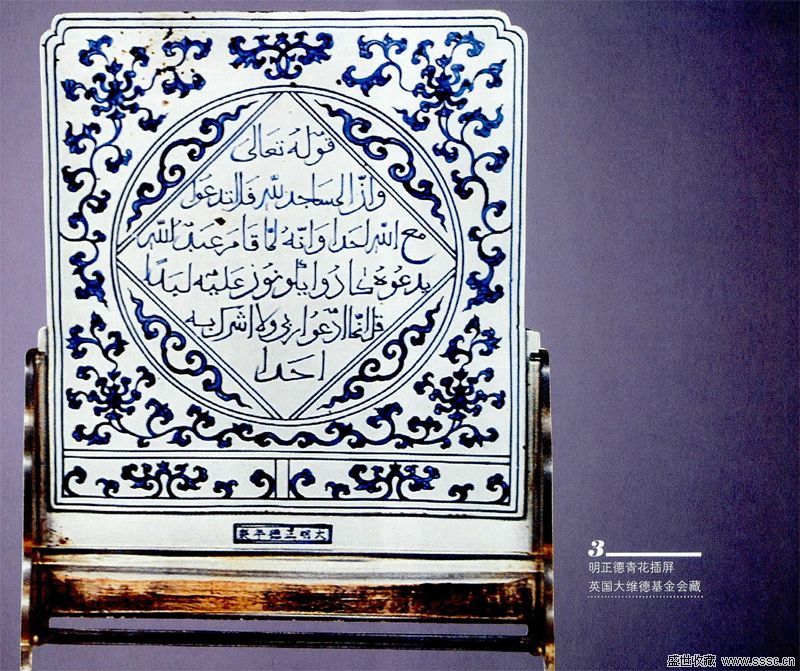 قوله تعالى
وان المساجد لله فلا تدعوا
مع الله احدا وانه لما قام عبد الله
يدعوه كادوا يكونون عليه لبدا
قل انما ادعوا ربي ولا اشرك به
احدا
大明正德年製
3
明正德青花插屏
英国大维德基金会藏
盛世收藏 www.sssc.cn